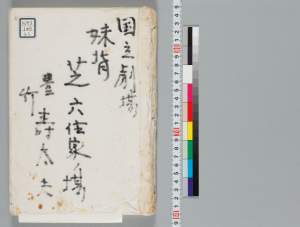 国立劇場
妹背
芝六住家ノ場
豊寿太夫
竹